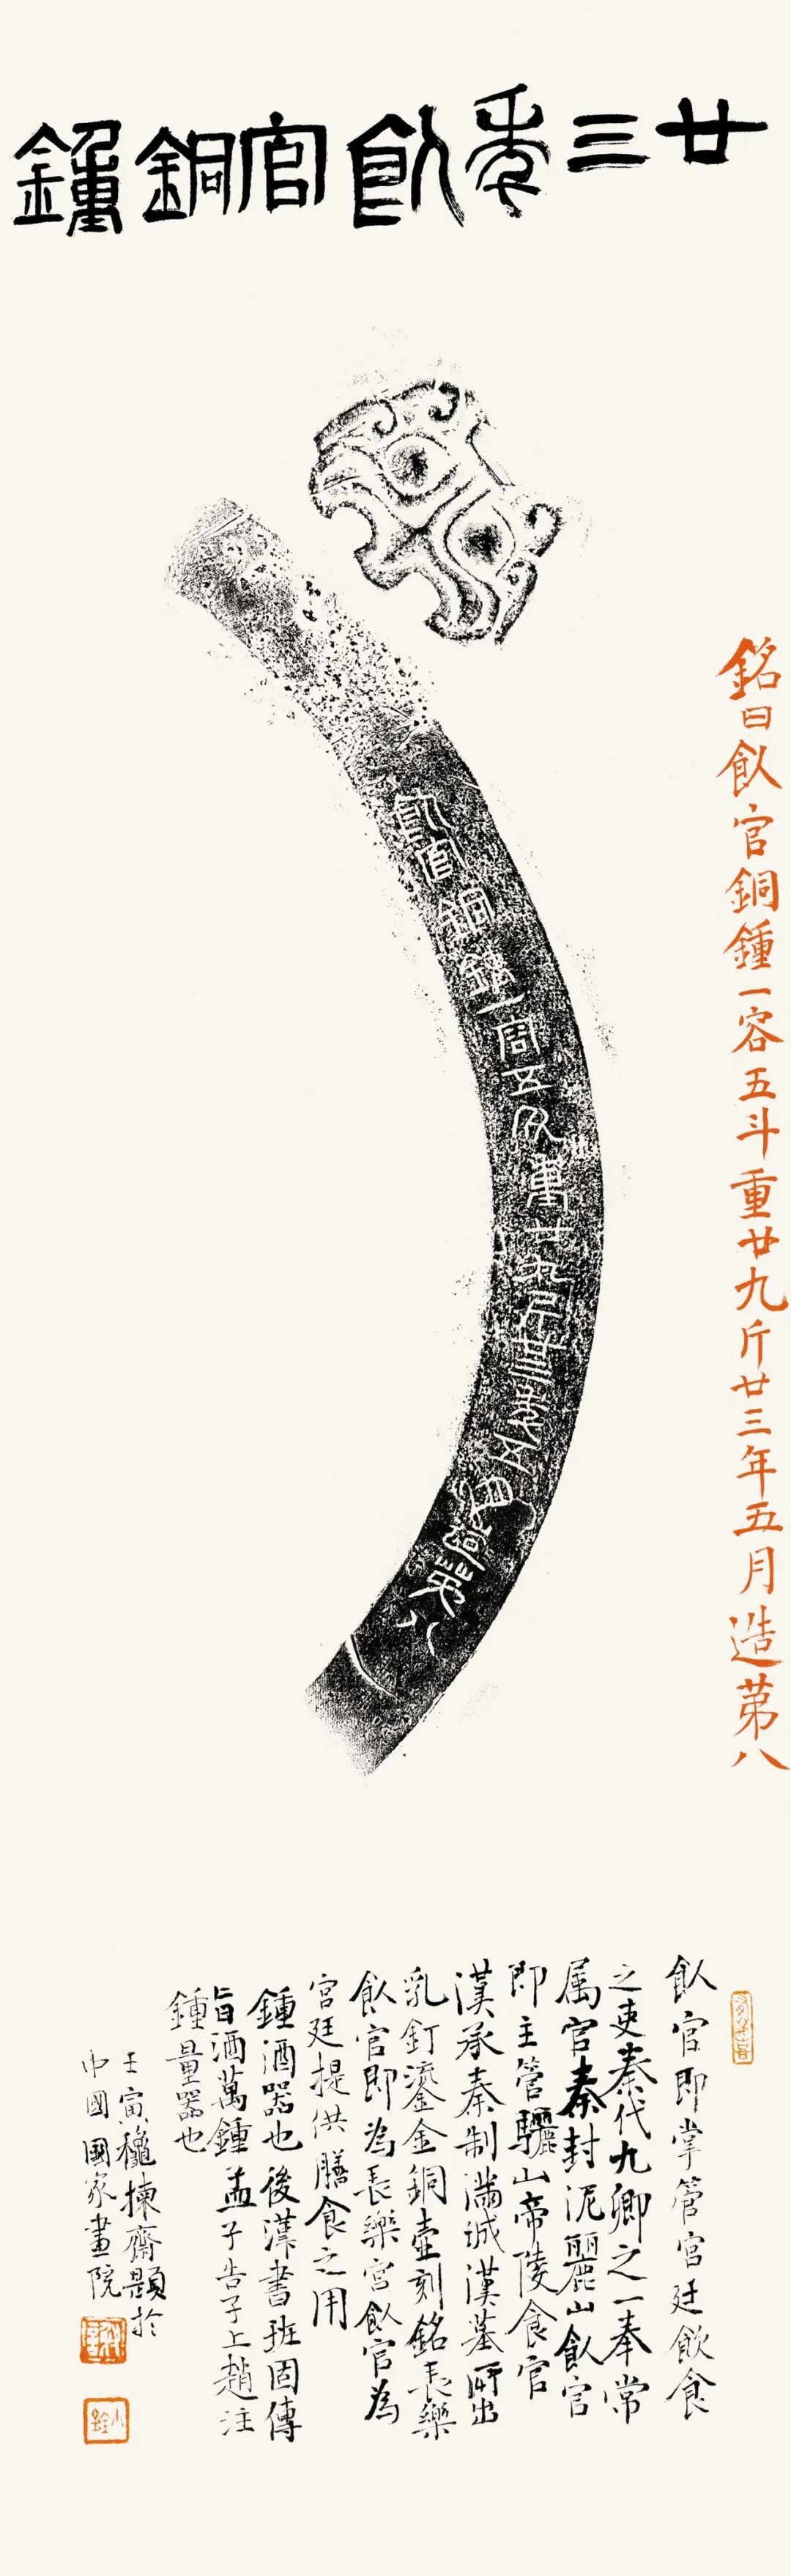 廿三年飤官銅鍾
銘曰飤官銅鍾一容五斗重廿九斤廿三年五月造第八
飤官銅鍾一容五斗重廿九斤廿三年五月造第八
飤官即掌管宫廷飲食
之吏秦代九卿之一奉常
属官秦封泥麗山飤官
即主管驪山帝陵食官
漢承秦制滿城漢墓所出
乳釘鎏金銅壺刻銘長樂
飤官即為長樂宫飤官為
宫廷提供膳食之用
鍾酒器也後漢書班固傳
旨酒萬鍾孟子告子上趙注
鍾量器也
壬寅穐揀齋題於
中國國家畫院